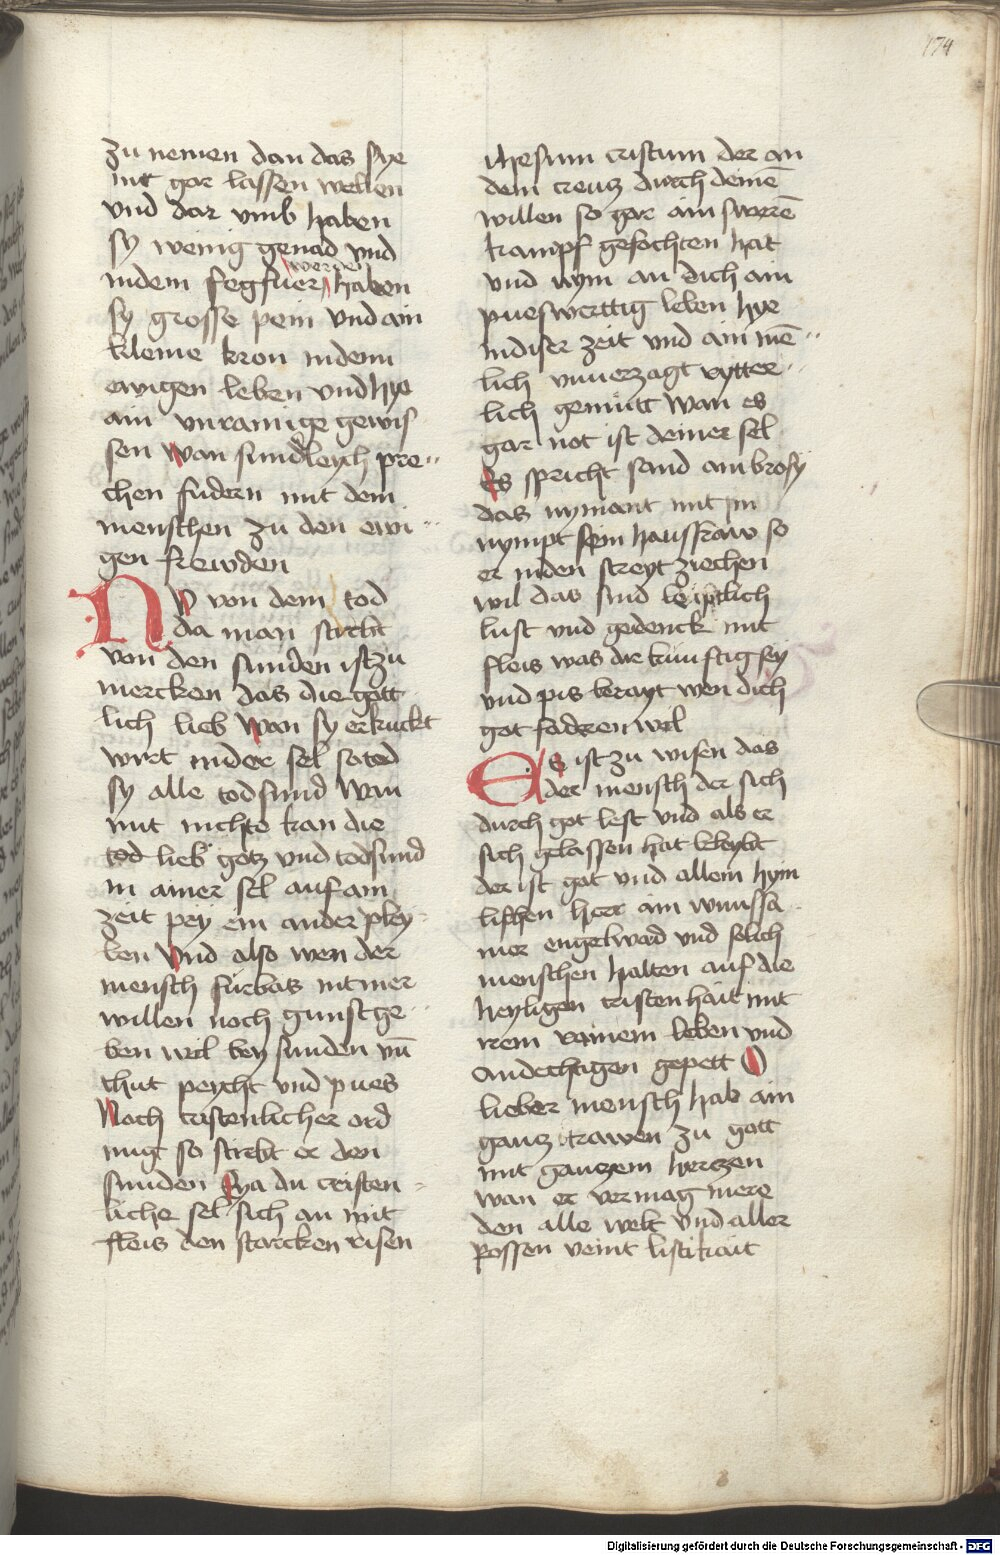 174
zu nemen dan das sye
nit gar lassen wellen
vnd dar vmb haben
sy wenig genad vnd
werden
indem fegfuer haben
sy grosse pein vnd ain
kleine kron indem
ewigen leben vnd hye
ain vnrainige gewis
sen wan sundleych pre
chen fudern nit dem
menschen zu den ewi
gen frewden
Nv von dem tod
da man stirbt
von den sunden ist zu
mercken das die gött
lich lieb wan sy erkuckt
wirt inder sel so töd
sy alle todsund wan
mit nichte kan die
tod lieb gotz vnd todsund
in ainer sel auf ain
zeit pey ein ander pley
ben vnd also wen der
mensch fürbas nit mer
willen noch gunst ge
ben wil bey sunden vn̄
thut peycht vnd pues
Noch cristenlicher ord
nug so stirbt er den
sunden Sya du cristen
liche sel sich an mit
fleis den starcken risen
ihesum cristum der an
dem creutz durch deinē
willen so gar ain swerē
kampf gefochten hat
vnd nym an dich ain
pueswerttig leben hye
indiser zeit vnd ain mē
lich vnuerzagt rytter
lich gemütt wan es
gar not ist deiner sel
Es spricht sand ambrosy
das nymant mit im
nympt sein hausfraw so
er inden streyt ziechen
wil das sind leiplich
lust vnd gedenck mit
fleis was die kunftig sey
vnd pis berayt wen dich
got foderen wil
Es ist zu wisen das
der mensch der sich
durch got lest vnd als er
sich gelassen hat beleybt
der ist got vnd allem hym
lischen heer am wunsa
mer engelwad vnd solich
menschen halten auf die
heyligen cristenhait mit
irem rainem leben vnd
andechtigen gepett O
lieber mensch hab ain
gantz trawen zu gott
mit gantzem hertzen
wan er vermag mere
den alle welt vnd aller
possen veint listikait
Digitalisierung gefördert durch die Deutsche Forschungsgemeinschaft - DFG